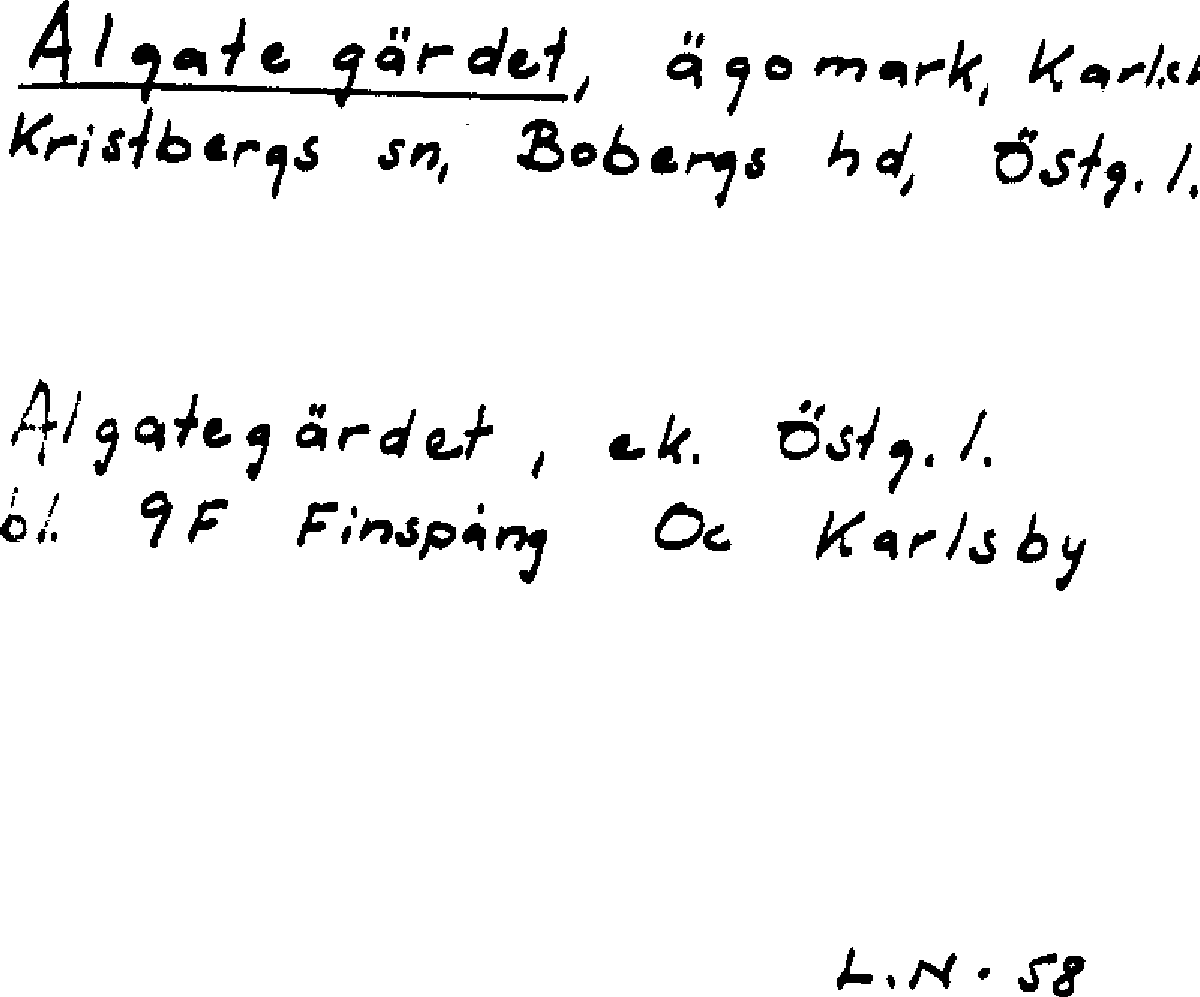 Algate gärdet, ägomark,
Kristbergs sn, Bobergs hd, Östg. l.
Algategärdet, ek. Östg. l.
bl. 9F Finspång Oc Karlsby
L.N. 58